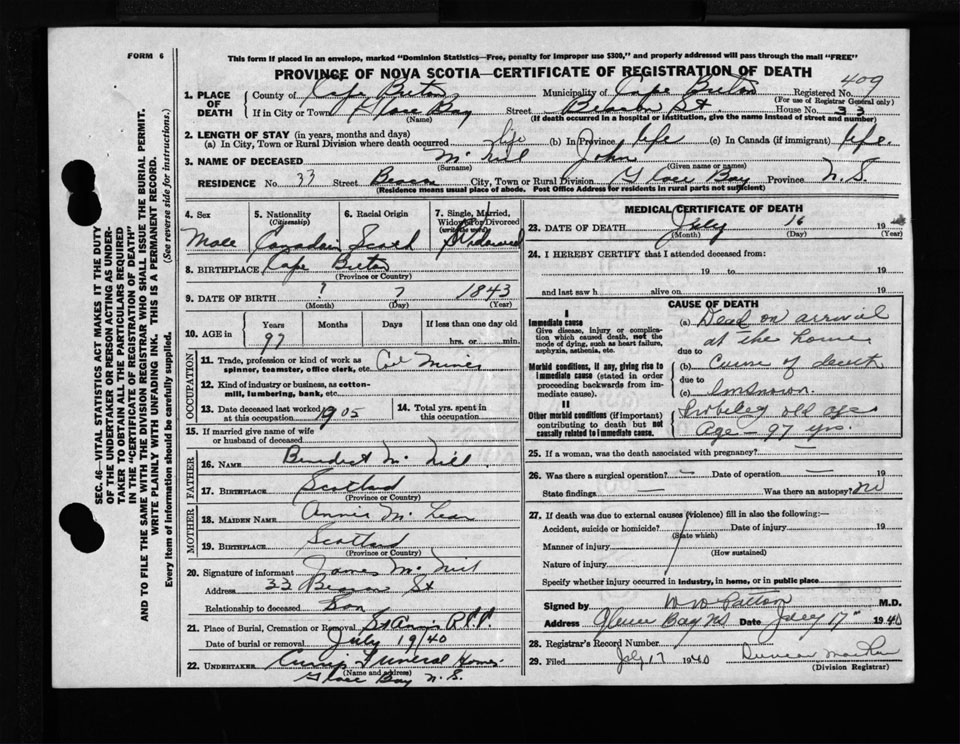 FORM 6
This form if placed in an envelope, marked "Dominion Statistics—Free, penalty for improper use $300," and properly addressed will pass through the mail "FREE"
PROVINCE OF NOVA SCOTIA—CERTIFICATE OF REGISTRATION OF DEATH
SEC. 46—VITAL STATISTICS ACT MAKES IT THE DUTY
OF THE UNDERTAKER OR PERSON ACTING AS UNDER-
TAKER TO OBTAIN ALL THE PARTICULARS REQUIRED
IN THE "CERTIFICATE OF REGISTRATION OF DEATH"
AND TO FILE THE SAME WITH THE DIVISION REGISTRAR WHO SHALL ISSUE THE BURIAL PERMIT.
WRITE PLAINLY WITH UNFADING INK. THIS IS A PERMANENT RECORD.
Every item of information should be carefully supplied. (See reverse side for instructions.)
1. PLACE OF DEATH County of Cape Breton Municipality of Cape Breton Registered No. 409
(For use of Registrar General only)
If in City or Town Glace Bay Street Beacon St House No. 33
(Name) (If death occurred in a hospital or institution, give the name instead of street and number)
2. LENGTH OF STAY (in years, months and days)
(a) In City, Town or Rural Division where death occurred life (b) In Province life (c) In Canada (if immigrant) life.
3. NAME OF DECEASED McNeil John
(Surname) (Given name or names)
RESIDENCE No. 33 Street Beacon City, Town or Rural Division Glace Bay Province N.S.
(Residence means usual place of abode. Post Office Address for residents in rural parts not sufficient)
4. Sex 5. Nationality (Citizenship) 6. Racial Origin 7. Single, Married, Widowed or Divorced (write the word)
Male Canadain Scotch Widowed
8. BIRTHPLACE Cape Breton
(Province or Country)
9. DATE OF BIRTH ? ? 1843
(Month) (Day) (Year)
10. AGE in Years Months Days If less than one day old
97 hrs. or min.
OCCUPATION
11. Trade, profession or kind of work as spinner, teamster, office clerk, etc. Col Miner
12. Kind of industry or business, as cotton-mill, lumbering, bank, etc.
13. Date deceased last worked at this occupation 1905 14. Total yrs. spent in this occupation
15. If married give name of wife or husband of deceased
FATHER
16. NAME Benedict McNeil.
17. BIRTHPLACE Scotland
(Province or Country)
MOTHER
18. MAIDEN NAME Annie McLean
19. BIRTHPLACE Scotland
(Province or Country)
20. Signature of informant James McNeil
Address 33 Beacon St
Relationship to deceased Son
21. Place of Burial, Cremation or Removal St Anns
Date of burial or removal July 19/40
22. UNDERTAKER Funeral Home
(Name and address)
Glace Bay N.S.
MEDICAL CERTIFICATE OF DEATH
23. DATE OF DEATH July 16 19
(Month) (Day) (Year)
24. I HEREBY CERTIFY that I attended deceased from
19 to 19
and last saw h alive on 19
CAUSE OF DEATH
I
Immediate cause
Give disease, injury or complication which caused death, not the mode of dying, such as heart failure, asphyxia, asthenia, etc.
(a) Dead on arrival
at the home
due to
Morbid conditions, if any, giving rise to immediate cause (stated in order proceeding backwards from immediate cause).
(b) Cause of death
due to
(c) unknown.
II
Other morbid conditions (if important) contributing to death but not causally related to immediate cause.
Probeley old age
Age - 97 yrs.
25. If a woman, was the death associated with pregnancy?
26. Was there a surgical operation? — Date of operation — 19
State findings — Was there an autopsy? no
27. If death was due to external causes (violence) fill in also the following:—
Accident, suicide or homicide? Date of injury 19
(State which)
Manner of injury
(How sustained)
Nature of injury
Specify whether injury occurred in industry, in home, or in public place
Signed by Patton M.D.
Address Glace Bay NS Date July 17" 1940
28. Registrar's Record Number
29. Filed July 17 1940 Duncan
(Division Registrar)